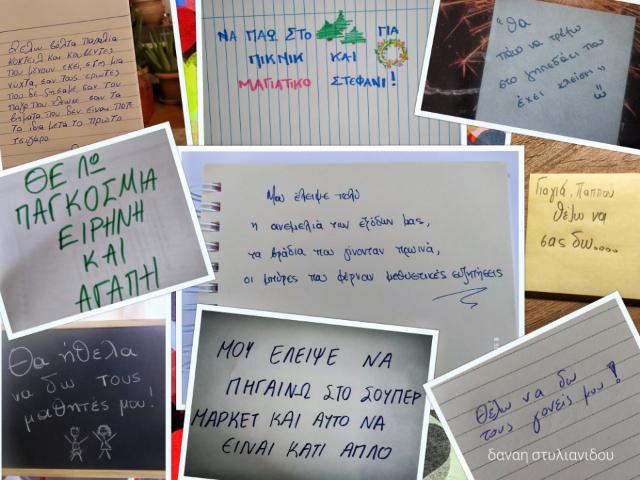 Θέλω βόλτα παραλία
κοκτέιλ και κουβέντες
που μένουν εκεί, στη μια
νύχτα, σαν τους έρωτες
που δε ζήσαμε, σαν τον
που κλαίμε σαν τα
βήματα που δεν είναι ποτέ
τα ίδια μετά το πρώτο
τσιγάρο.
ΝΑ ΠΑΩ ΣΤΟ ΓΙΑ
ΠΙΚΝΙΚ ΚΑΙ
ΜΑΓΙΑΤΙΚΟ ΣΤΕΦΑΝΙ!
"Θα
πάω να τρέξω
στο γηπεδάκι που
έχει κλείσει"
ΘΕΛΩ
ΠΑΓΚΟΣΜΙΑ
ΕΙΡΗΝΗ
ΚΑΙ
ΑΓΑΠΗ
Μου έλειψε πολύ
η ανεμελιά των εξόδων μας,
τα βράδια που γίνονταν πρωινά,
οι μπύρες που φέρναν μεθυστικές συζητήσεις
Γιαγιά, Παππού
θέλω να
σας δω....
Θα ήθελα
να δω τους
μαθητές μου!
ΜΟΥ ΕΛΕΙΨΕ ΝΑ
ΠΗΓΑΙΝΩ ΣΤΟ ΣΟΥΠΕΡ
ΜΑΡΚΕΤ ΚΑΙ ΑΥΤΟ ΝΑ
ΕΙΝΑΙ ΚΑΤΙ ΑΠΛΟ
Θέλω να δω
τους γονείς μου!
δαναη στυλιανιδου